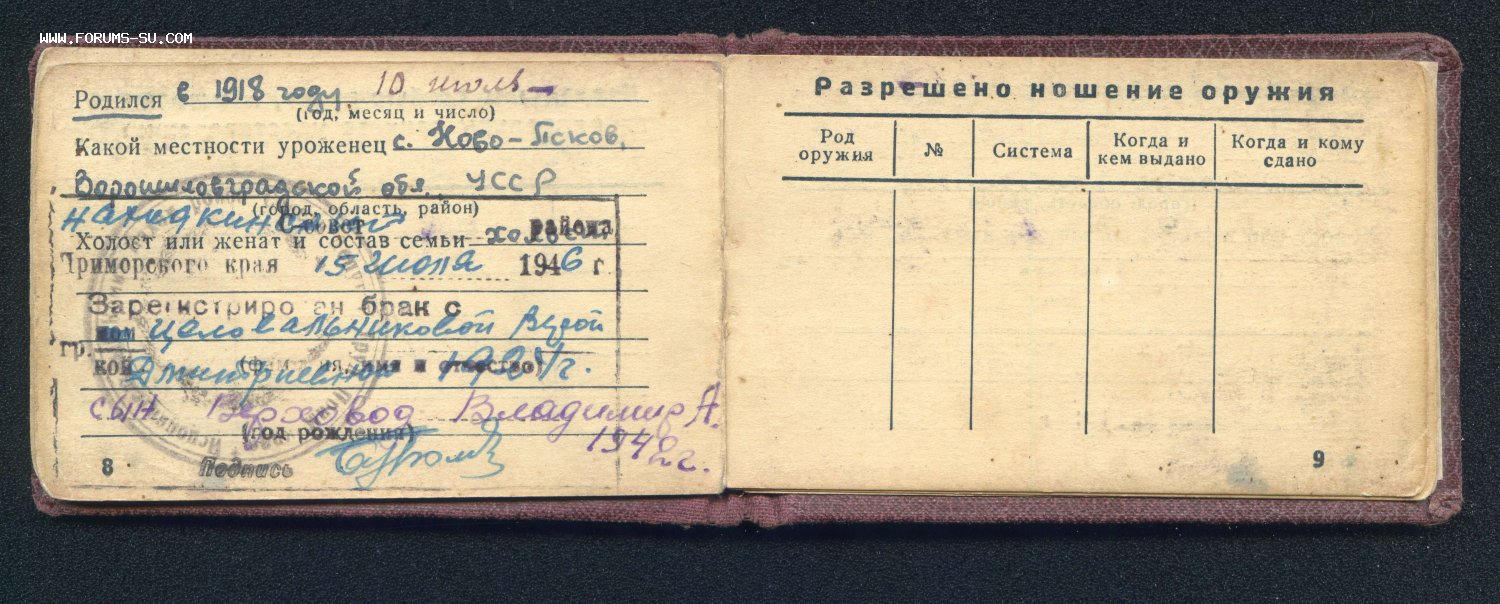 WWW.FORUMS-SU.COM
Родился в 1918 году, 10 июль
(год, месяц и число)
Какой местности уроженец с. Ново-Псков,
Ворошиловградской обл. УССР
(город, область, район)
района
Холост или женат и состав семьи холост
Приморского края 15 июля 1946 г
Зарегистриро ан брак с
ном Целовальниковой Верой
гр.
кой Дмитриевной 1924 г.
сын Верховод Владимир А.
(год рождения) 1948 г.
8 Подпись
Разрешено ношение оружия
Род оружия
№
Система
Когда и кем выдано
Когда и кому сдано
9